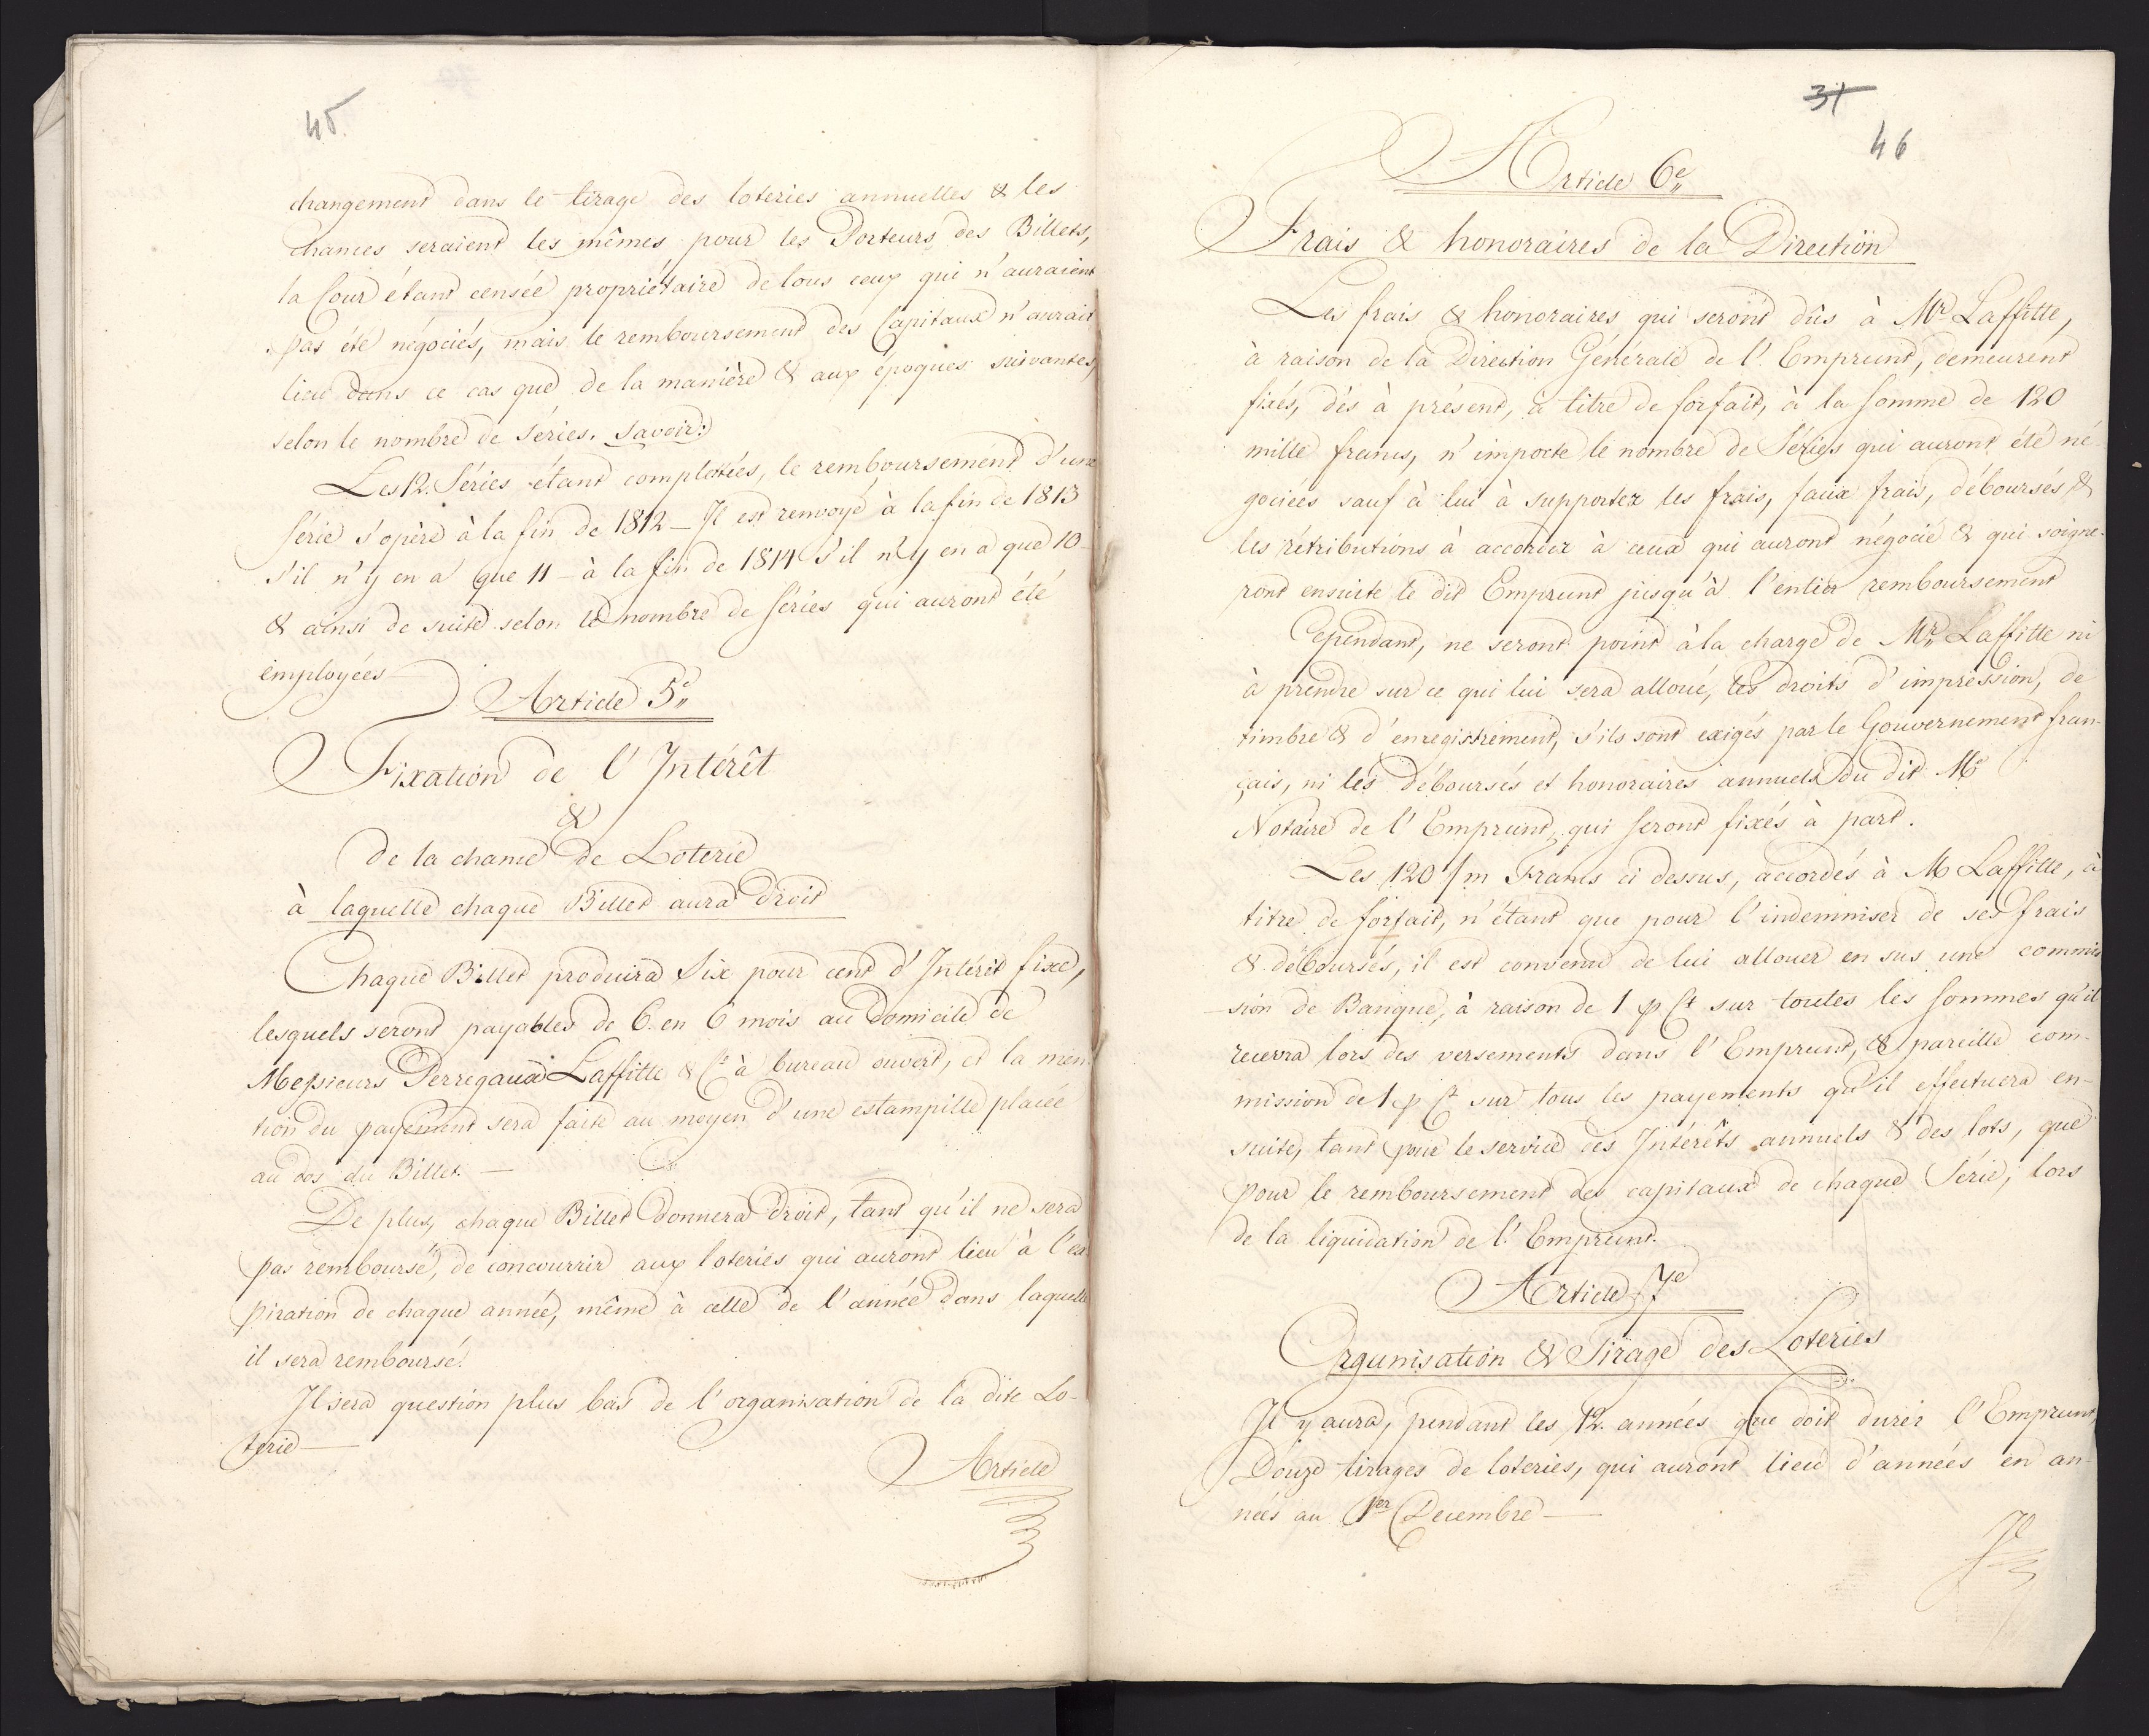 45.
changement dans le tirage des loteries annuelles & les
chances seraient les mêmes pour les Porteurs des Billets,
la Cour étant censée propriétaire de tous ceux qui n'auraient
pas été négociés, mais le remboursement des Capitaux n'aurait
lieu dans ce cas que de la manière & aux époques suivantes,
selon le nombre de séries. Savoir:
Les 12. Séries étant complettées, le remboursement d'une
Série s'opère à la fin de 1812 — Il est renvoyé à la fin de 1813
s'il n'y en a que 11 — à la fin de 1814 s'il n'y en a que 10 —
& ainsi de suite selon le nombre de Séries qui auront été
employées
Article 5e
Fixation de l'Intérêt
&
de la chance de Loterie
à laquelle chaque Billet aura droit
Chaque Billet produira Six pour cent d'Intérêt fixe,
lesquels seront payables de 6. en 6 mois au Domicile de
Messieurs Perregaux Laffitte & Ce à bureau ouvert, et la men-
tion du payement sera faite au moyen d'une estampille placée
au dos du Billet. —
De plus, chaque Billet donnera droit, tant qu'il ne sera
pas remboursé, de concourrir aux loteries qui auront lieu à l'ex-
piration de chaque année, même à celle de l'année dans laquelle
il sera remboursé.
Il sera question plus bas de l'organisation de la dite Lo-
terie —
Article
31
46
Article 6e
Frais & honoraires de la Direction
Les frais & honoraires qui seront dûs à Mr Laffitte,
à raison de la Direction Générale de l'Emprunt, demeurent
fixés, dès à présent, à titre de forfait, à la Somme de 120
mille francs, n'importe le nombre de Séries qui auront été né-
gociées sauf à lui à supporter les frais, faux frais, déboursés &
les rétributions à accorder à ceux qui auront négocié & qui soigne-
ront ensuite le dit Emprunt jusqu'à l'entier remboursement
Cependant, ne seront point à la charge de Mr Laffitte ni
à prendre sur ce qui lui sera alloué, les droits d'impression, de
timbre & d'enregistrement, s'ils sont exigés par le Gouvernement fran-
çais, ni les déboursés et honoraires annuels du dit Me
Notaire de l'Emprunt, qui seront fixés à part.
Les 120/m Francs ci dessus, accordés à M Laffitte, à
titre de forfait, n'étant que pour l'indemniser de ses frais
& déboursés, il est convenu de lui allouer en sus une commis
sion de Banque, à raison de 1 p Ct sur toutes les Sommes qu'il
recevra lors des versements dans l'Emprunt, & pareille com-
mission de 1 p Ct sur tous les payements qu'il effectuera en-
suite, tant pour le service des Intérêts annuels & des lots, que
pour le remboursement des capitaux de chaque Série, lors
de la liquidation de l'Emprunt.
Article 7e
Organisation & Tirage des Loteries
Il y aura, pendant les 12. années que doit durer l'Emprunt,
Douze tirages de loteries, qui auront lieu d'années en an-
nées au 1er Decembre —
Il